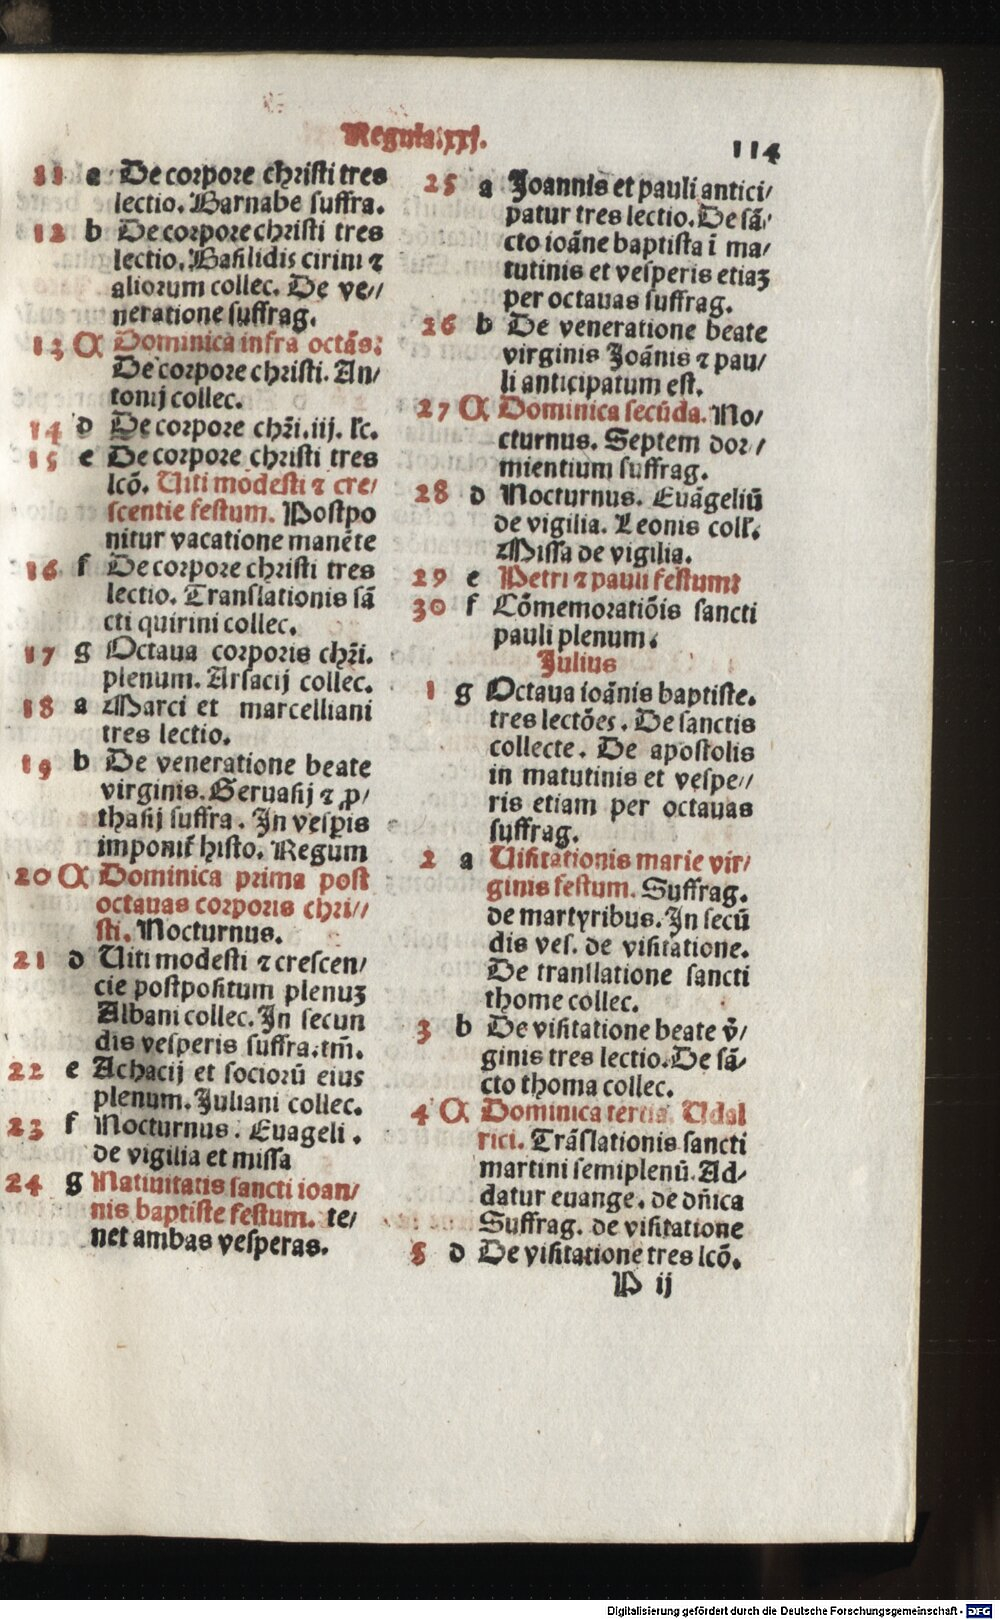 Regula.xxj.
114
11 a De corpore christi tres
lectio. Barnabe suffra.
12 b De corpore christi tres
lectio. Basilidis cirini ⁊
aliorum collec. De ve//
neratione suffrag.
13 A Dominica infra octās:
De corpore christi. An/
tonij collec.
14 d De corpore chr̄i. iij. lc̄.
15 e De corpore christi tres
lcō. Uiti modesti ⁊ cre/
scentie festum. Postpo
nitur vacatione manēte
16 f De corpore christi tres
lectio. Translationis sā
cti quirini collec.
17 g Octaua corporis chr̄i.
plenum. Arsacij collec.
18 a Marci et marcelliani
tres lectio.
19 b De veneratione beate
virginis. Geruasij ⁊ ꝓ/
thasij suffra. In vesꝑis
imponit̄ histo. Regum
20 A Dominica prima post
octauas corporis chri//
sti. Nocturnus.
21 d Uiti modesti ⁊ crescen/
cie postpositum plenuꝫ
Albani collec. In secun
dis vesperis suffra. tm̄.
22 e Achacij et sociorū eius
plenum. Juliani collec.
23 f Nocturnus. Euageli.
de vigilia et missa
24 g Natiuitatis sancti ioan/
nis baptiste festum. te/
net ambas vesperas.
25 a Joannis et pauli antici/
patur tres lectio. De sā/
cto ioāne baptista ī ma/
tutinis et vesperis etiaꝫ
per octauas suffrag.
26 b De veneratione beate
virginis Joānis ⁊ pau/
li anticipatum est.
27 A Dominica secūda. No/
cturnus. Septem dor/
mientium suffrag.
28 d Nocturnus. Euāgeliū
de vigilia. Leonis coll̄.
Missa de vigilia.
29 e Petri ⁊ pauli festum:
30 f Cōmemoratiōis sancti
pauli plenum.
Julius
1 g Octaua ioānis baptiste.
tres lectōes. De sanctis
collecte. De apostolis
in matutinis et vespe//
ris etiam per octauas
suffrag.
2 a Uisitationis marie vir/
ginis festum. Suffrag.
de martyribus. In secū
dis ves. de visitatione.
De translatione sancti
thome collec.
3 b De visitatione beate v̄/
ginis tres lectio. De sā/
cto thoma collec.
4 A Dominica tertia. Udal
rici. Trāslationis sancti
martini semiplenū. Ad/
datur euange. de dn̄ica
Suffrag. de visitatione
5 d De visitatione tres lcō.
P ij
Digitalisierung gefördert durch die Deutsche Forschungsgemeinschaft - DFG